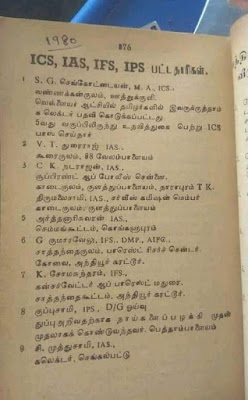 1980
876
ICS, IAS, IFS, IPS பட்டதாரிகள்.
1 S. G. செங்கோட்டையன், M. A., ICS -
வண்ணக்கன்குலம், ஊத்துக்குளி.
வெள்ளையர் ஆட்சியில் தமிழர்களில் இவருக்குத்தாம்
கலெக்டர் பதவி கொடுக்கப்பட்டது
5வது வகுப்பிலிருந்து உதவித்துகை பெற்று ICS
பாஸ் செய்தார்
2 V. T. துரைராஜ் IAS.,
கூறைகுலம், வேலம்பாளையம்
3 C K. நடராஜன் IAS.,
சூப்பிரண்ட் ஆப் போலீஸ் சென்னை.
காடைகுலம், குளத்துப்பாளையம், தாராபுரம் T K.
திருமலைசாமி, IAS., சர்வீஸ் கமிஷன் மெம்பர்
காடைகுலம், குளத்துப்பாளையம்
5 அர்த்தனாரீஸ்வரன் IAS.,
செம்மங்கூட்டம், கொங்கணாபுரம்
6 G குமாரவேலு, IFS., DMP., AIFC.,
சாத்தந்தைகுலம், பாரெஸ்ட் ரிசர்ச் சென்டர்.
கோவை, அந்தியூர் கரட்டூர்.
7 K. சோமசுந்தரம், IFS.,
கன்சர்வேட்டர் ஆப் பாரெஸ்ட் மதுரை.
சாத்தந்தைகூட்டம், அந்தியூர் கரட்டூர்.
8 குப்புசாமி, IPS., D/G ஓய்வு
துப்பு அறிவதற்காக நாய்களைப்பழக்கி முதன்
முதலாகக் கொண்டுவந்தவர். பெத்தாம்பாளையம்
9 சி. முத்துசாமி, IAS.,
கலெக்டர், செங்கல்பட்டு